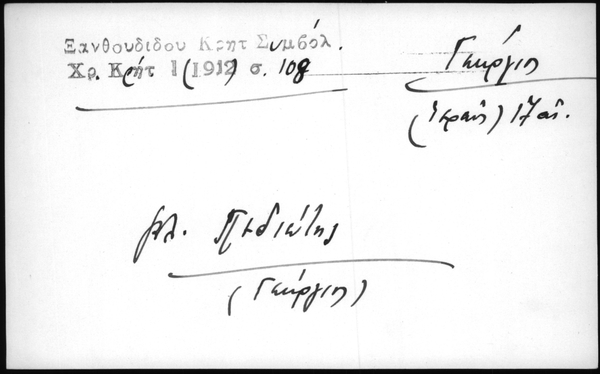 Ξανθουδιδου Κρητ Συμβόλ.
Χρ. Κρήτ 1 (1912) σ. 108
Γεώργιος
(ἱερεύς) 17 αἰ.
βλ. Πεδιώτης
(Γεώργιος)